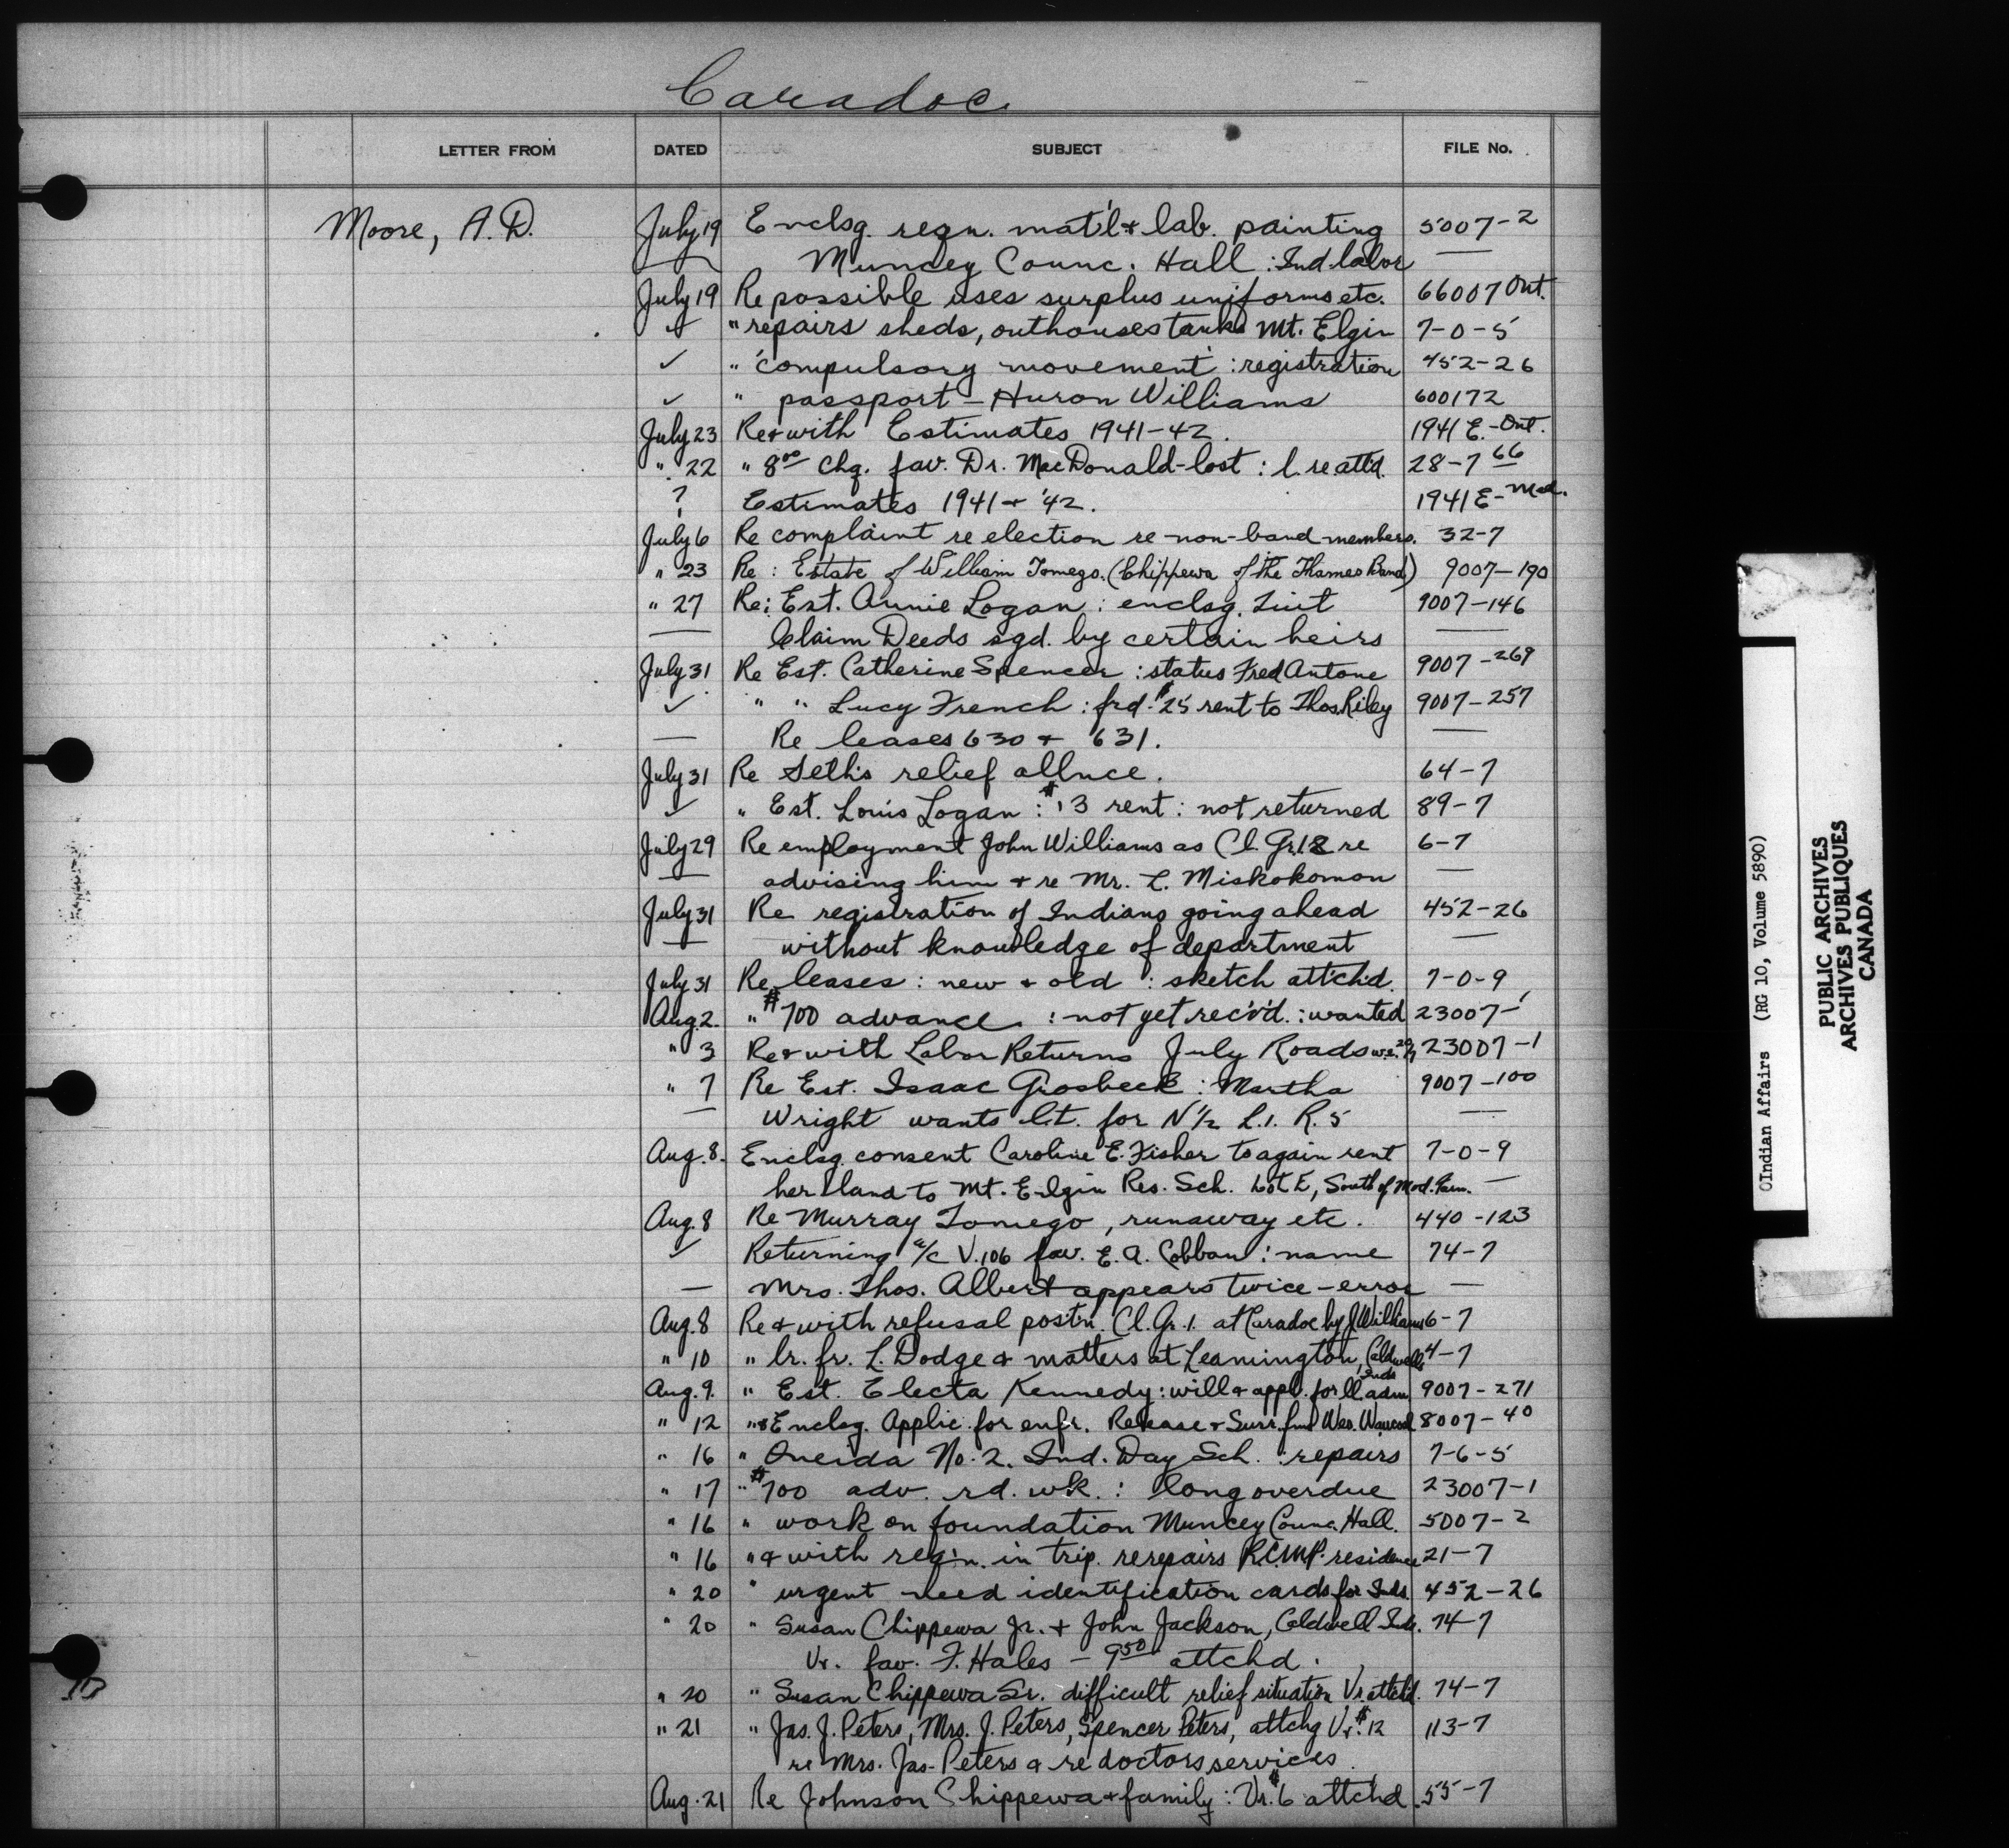 Caradoc
LETTER FROM DATED SUBJECT FILE No.
Moore, A. D. July 19 Enclsg. reqn. mat'l & lab. painting 5007-2
— Muncey Counc. Hall : Ind. labor —
July 19 Re possible uses surplus uniforms etc. 66007 Ont.
✓ " repairs sheds, outhouses tanks Mt. Elgin 7-0-5
✓ " 'compulsory movement' : registration 452-26
✓ " passport - Huron Williams 600172
July 23 Re & with Estimates 1941-42. 1941 E.-Ont.
" 22 " 8⁰⁰ chq. fav. Dr. MacDonald-lost : l. re attd. 28-7 66
? Estimates 1941 & '42. 1941 E- Med.
July 6 Re complaint re election re non-band members. 32-7
" 23 Re : Estate of William Tomego. (Chippewa of the Thames Band) 9007-190
" 27 Re: Est. Annie Logan : enclsg. 9007-146
— Claim Deeds sgd. by certain heirs —
July 31 Re Est. Catherine Spencer : status Fred Antone 9007-269
✓ " " Lucy French : frd. $25 rent to Thos. Riley 9007-257
— Re leases 630 & 631. —
July 31 Re Seth's relief allnce. 64-7
✓ " Est. Louis Logan : $13 rent : not returned 89-7
July 29 Re employment John Williams as Cl. Gr. re 6-7
— advising him & re Mr. L. Miskokomon —
July 31 Re registration of Indians going ahead 452-26
— without knowledge of department —
July 31 Re leases : new & old : sketch attchd. 7-0-9
Aug. 2. " $700 advance : not yet rec'v'd. : wanted 23007-1
" 3 Re & with Labor Returns July Roads w.e. 23007-1
" 7 Re Est. Isaac Grosbeck : Martha 9007-100
— Wright wants l.t. for N ½ L.1. R. 5 —
Aug. 8. Enclsg. consent Caroline E. Fisher to again rent 7-0-9
her land to Mt. Elgin Res. Sch. Lot E, South of Mod. Farm. —
Aug. 8 Re Murray Tomego, runaway etc. 440-123
✓ Returning a/c V. 106 fav. E. A. Cobban : name 74-7
— Mrs. Thos. Albert appears twice - error —
Aug. 8 Re & with refusal post'n. Cl. Gr. 1. at Caradoc by J Williams 6-7
" 10 " lr. fr. L. Dodge & matters at Leamington, Caldwells Inds 4-7
Aug. 9. " Est. Electa Kennedy : will & appl. for ll. adm 9007-271
" 12 " & Enclsg. Applic. for enfr. Release & Surr. Wes. 8007-40
" 16 " Oneida No. 2. Ind. Day Sch. : repairs 7-6-5
" 17 " $700 adv. rd. wk. : long overdue 23007-1
" 16 " work on foundation Muncey Counc. Hall. 5007-2
" 16 " & with req'n. in trip. re repairs R.C.M.P. residence 21-7
" 20 " urgent need identification cards for Inds. 452-26
" 20 " Susan Chippewa Jr. & John Jackson, Caldwell Inds. 74-7
Vr. fav. F. Hales - 9⁵⁰ attchd.
" 20 " Susan Chippewa Sr. difficult relief situation Vr. attchd. 74-7
" 21 " Jas. J. Peters, Mrs. J. Peters, Spencer Peters, attchg Vr. $12 113-7
re Mrs. Jas. Peters & re doctors services.
Aug. 21 Re Johnson Chippewa & family : Vr. $6 attchd. 55-7
Indian Affairs (RG 10, Volume 5890)
PUBLIC ARCHIVES
ARCHIVES PUBLIQUES
CANADA